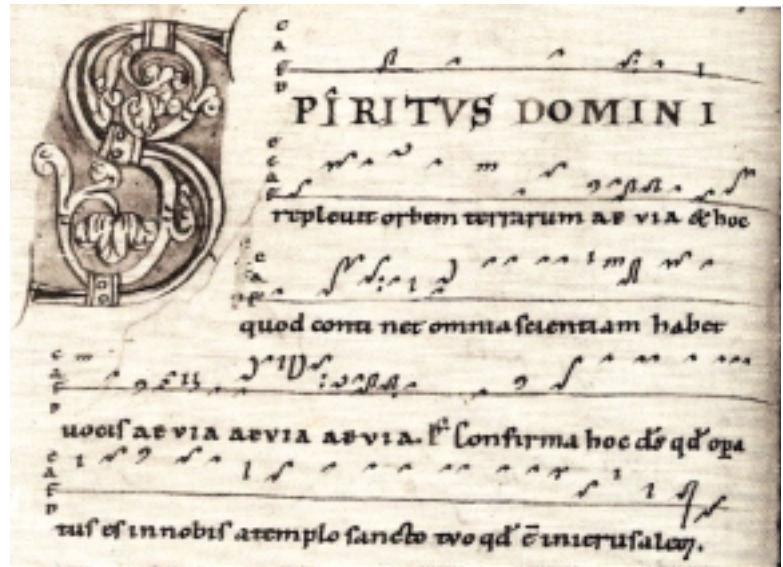 SPIRITVS DOMINI
repleuit orbem terrarum AEVIA & hoc
quod conti net omnia scientiam habet
uocis AEVIA AEVIA AEVIA. Ps Confirma hoc ds qd opa
tus es in nobis a templo sancto tuo qd ē in ierusalem.